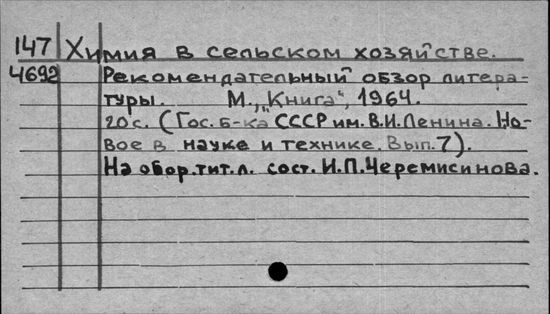 147 Химия в сельском хозяйстве.
4692 Рекомендательный обзор литера-
туры. М., „Книга“, 1964.
20 с. (Гос. б-ка СССР им. В.И. Ленина. Но-
вое в науке и технике. Вып. 7).
На обор. тит. л. сост. И.П. Черемисинова.